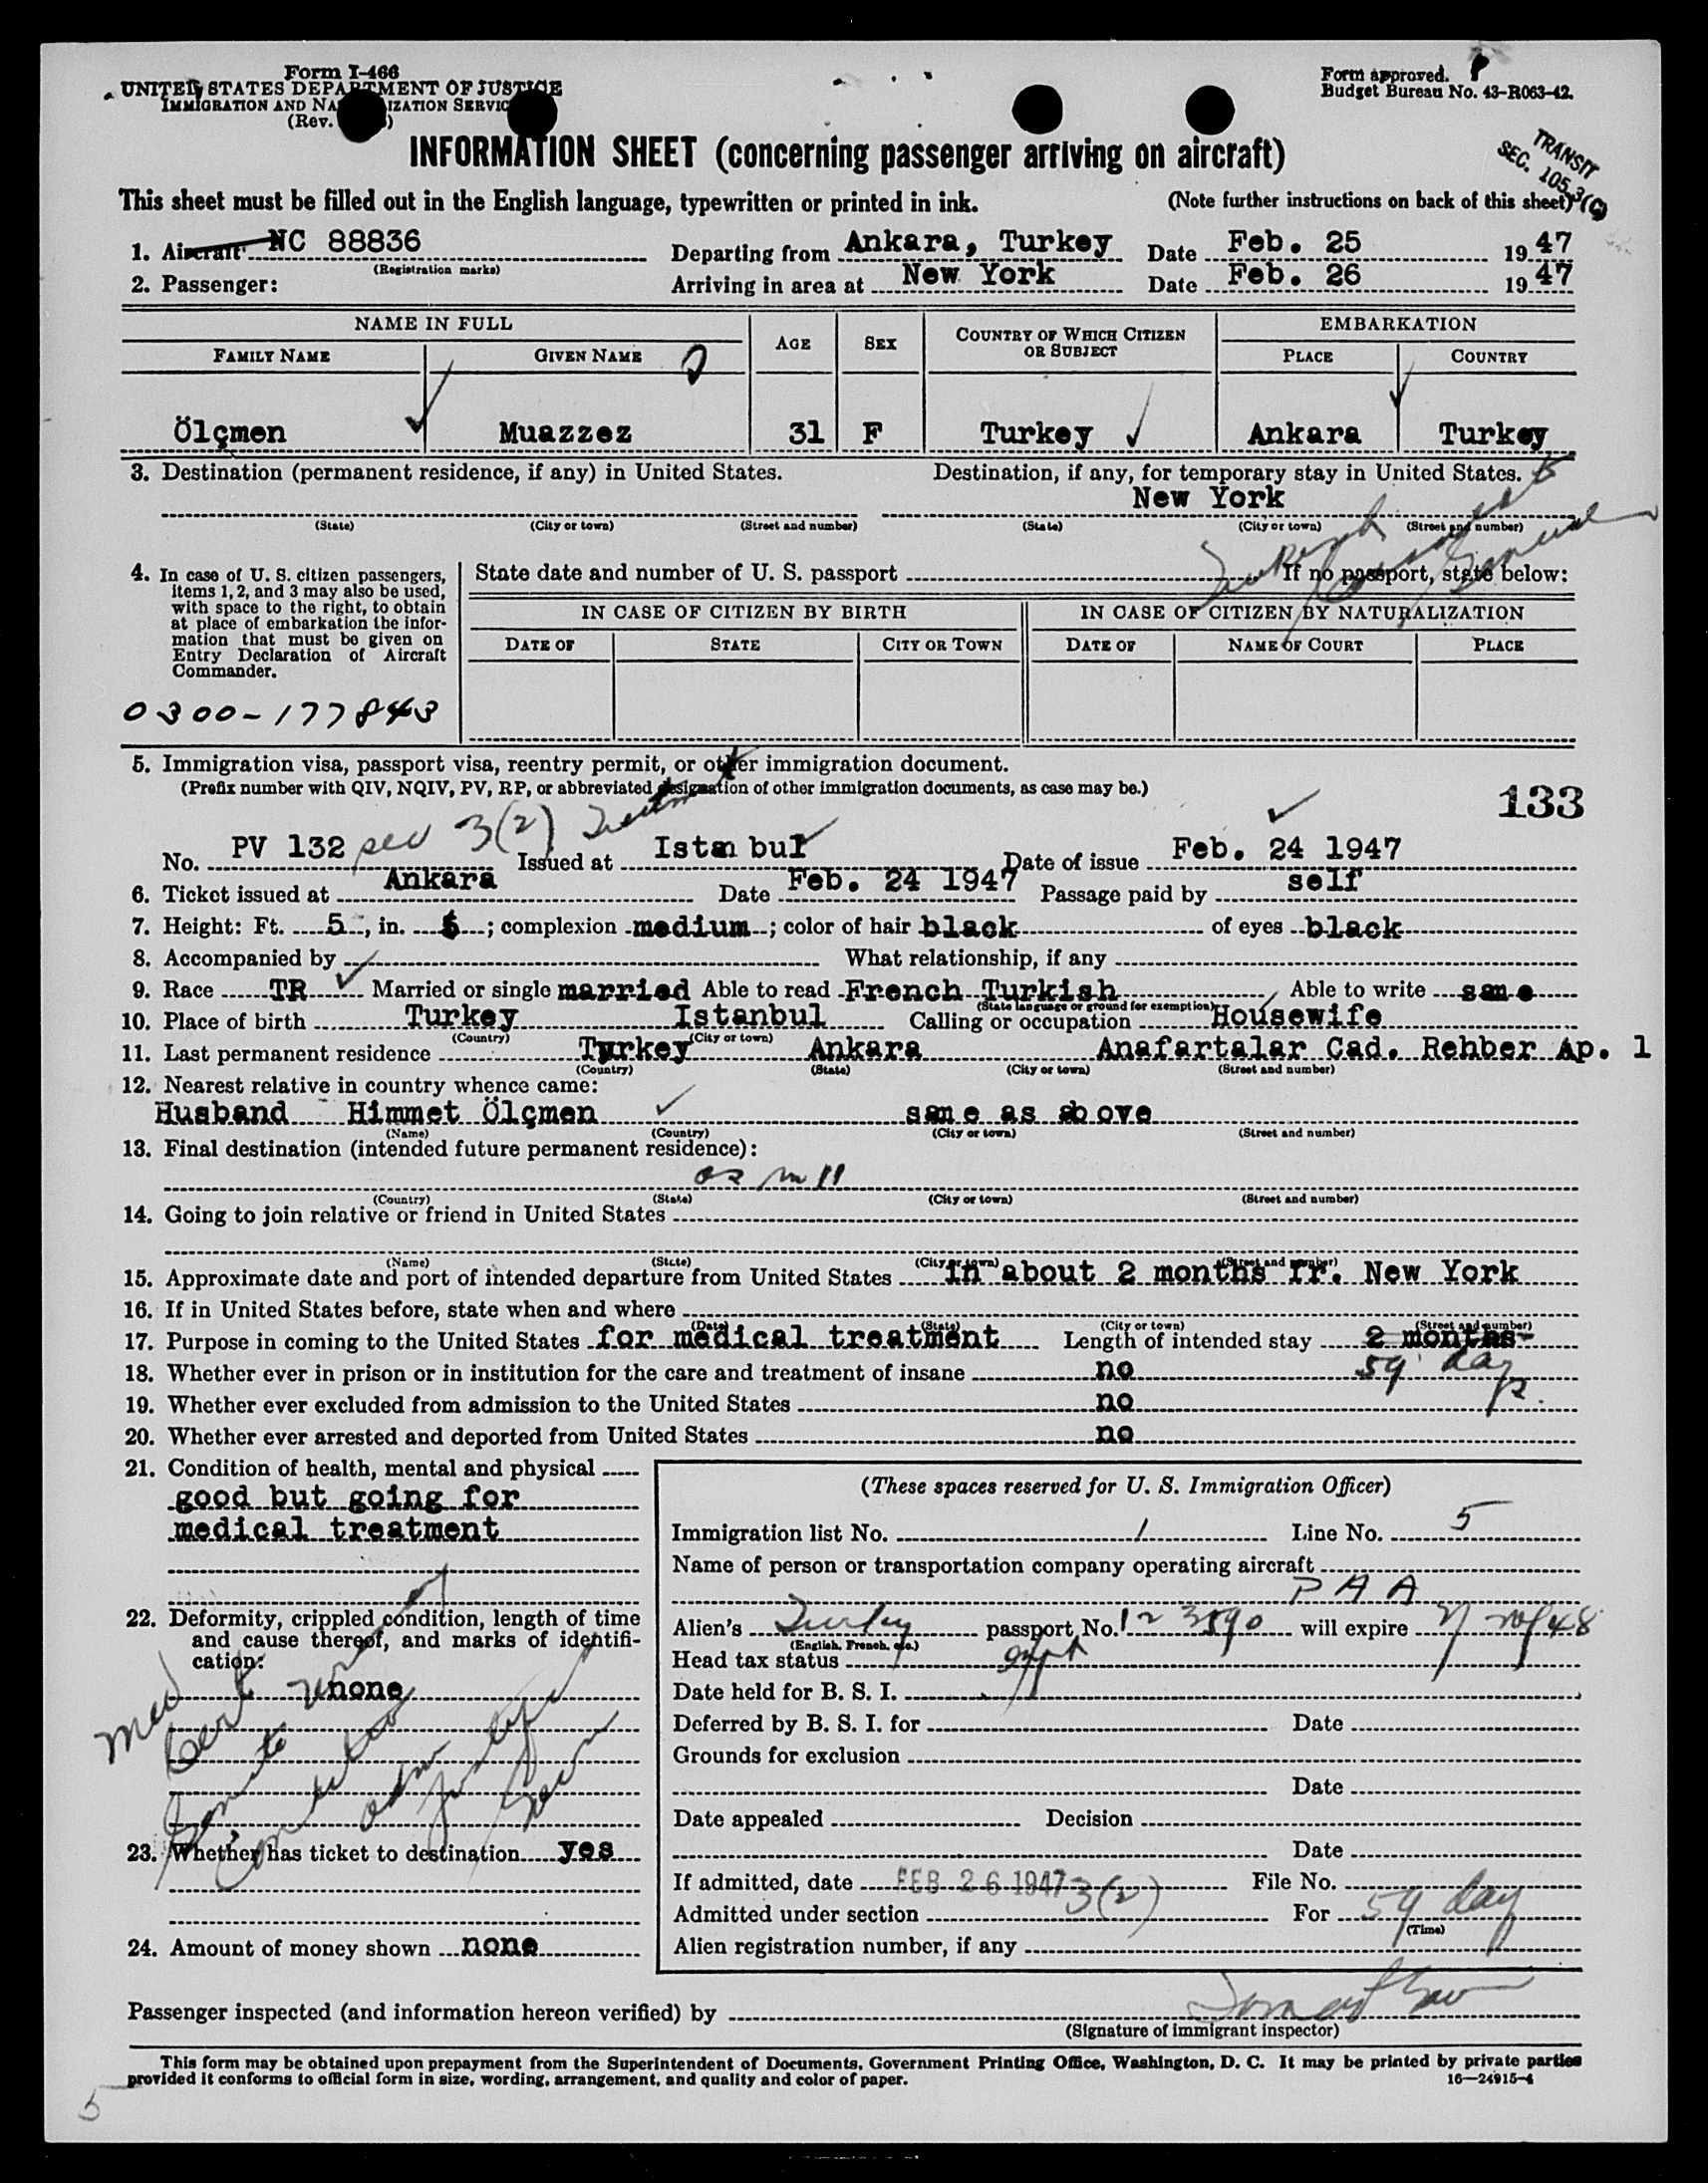 Form I-466
UNITED STATES DEPARTMENT OF JUSTICE
IMMIGRATION AND NATURALIZATION SERVICE
(Rev.
Form approved.
Budget Bureau No. 43-R063-42.
INFORMATION SHEET (concerning passenger arriving on aircraft)
TRANSIT
SEC. 105.3(
This sheet must be filled out in the English language, typewritten or printed in ink. (Note further instructions on back of this sheet)
1. Aircraft NC 88836 Departing from Ankara, Turkey Date Feb. 25 1947
(Registration marks)
2. Passenger: Arriving in area at New York Date Feb. 26 1947
NAME IN FULL AGE SEX COUNTRY OF WHICH CITIZEN OR SUBJECT EMBARKATION
FAMILY NAME GIVEN NAME PLACE COUNTRY
Ölçmen Muazzez 31 F Turkey Ankara Turkey
3. Destination (permanent residence, if any) in United States. Destination, if any, for temporary stay in United States.
New York
(State) (City or town) (Street and number) (State) (City or town) (Street and number)
Turkish Consulate General
4. In case of U. S. citizen passengers, items 1, 2, and 3 may also be used, with space to the right, to obtain at place of embarkation the information that must be given on Entry Declaration of Aircraft Commander.
State date and number of U. S. passport If no passport, state below:
IN CASE OF CITIZEN BY BIRTH IN CASE OF CITIZEN BY NATURALIZATION
DATE OF STATE CITY OR TOWN DATE OF NAME OF COURT PLACE
0300-177843
5. Immigration visa, passport visa, reentry permit, or other immigration document.
(Prefix number with QIV, NQIV, PV, RP, or abbreviated designation of other immigration documents, as case may be.)
133
No. PV 132 sec 3(2) Issued at Istanbul Date of issue Feb. 24 1947
6. Ticket issued at Ankara Date Feb. 24 1947 Passage paid by self
7. Height: Ft. 5, in. 5; complexion medium; color of hair black of eyes black
8. Accompanied by What relationship, if any
9. Race TR Married or single married Able to read French Turkish Able to write same
(State language or ground for exemption)
10. Place of birth Turkey Istanbul Calling or occupation Housewife
(Country) (City or town)
11. Last permanent residence Turkey Ankara Anafartalar Cad. Rehber Ap. 1
(Country) (State) (City or town) (Street and number)
12. Nearest relative in country whence came:
Husband Himmet Ölçmen same as above
(Name) (Country) (City or town) (Street and number)
13. Final destination (intended future permanent residence):
as in 11
(Country) (State) (City or town) (Street and number)
14. Going to join relative or friend in United States
(Name) (State) (City or town) (Street and number)
15. Approximate date and port of intended departure from United States In about 2 months fr. New York
16. If in United States before, state when and where
(Date) (State) (City or town) (Street and number)
17. Purpose in coming to the United States for medical treatment Length of intended stay 2 months
59 days
18. Whether ever in prison or in institution for the care and treatment of insane no
19. Whether ever excluded from admission to the United States no
20. Whether ever arrested and deported from United States no
21. Condition of health, mental and physical
good but going for
medical treatment
22. Deformity, crippled condition, length of time and cause thereof, and marks of identification:
none
Med Cert
23. Whether has ticket to destination yes
24. Amount of money shown none
(These spaces reserved for U. S. Immigration Officer)
Immigration list No. 1 Line No. 5
Name of person or transportation company operating aircraft
P A A
Alien's Turkey passport No. 123590 will expire
(English, French, etc.)
Head tax status
Date held for B. S. I.
Deferred by B. S. I. for Date
Grounds for exclusion
Date
Date appealed Decision
Date
If admitted, date FEB 26 1947 File No.
Admitted under section 3(2) For 59 day
(Time)
Alien registration number, if any
Passenger inspected (and information hereon verified) by
(Signature of immigrant inspector)
This form may be obtained upon prepayment from the Superintendent of Documents, Government Printing Office, Washington, D. C. It may be printed by private parties
provided it conforms to official form in size, wording, arrangement, and quality and color of paper. 16—24915-4
5